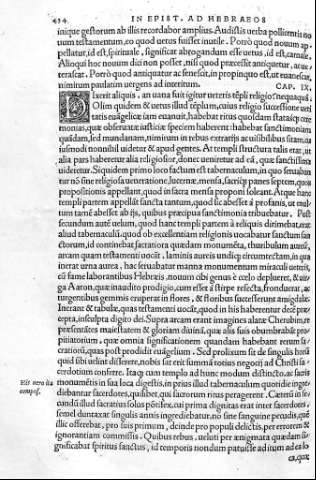 434 IN EPIST. AD HEBRAEOS
inique gestorum ab illis recordabor amplius. Audistis verba pollicentis no
uum testamentum, eo quod uetus fuisset inutile. Porrò quod nouum ap-
pellatur, id est, spirituale, significat abrogandum esse uetus, id est, carnale,
Alioqui hoc nouum dici non posset, nisi quod præcessit antiquetur, ac ue
terascat. Porrò quod antiquatur ac senescit, in propinquo est, ut euanescat,
nimirum paulatim uergens ad interitum. CAP. IX.
aliquis, an uetus
Olim quidem & uetus illud
monias, quæ obseruatæ iustitiæ speciem haberent: habebat sanctimoniam
quandam, sed mundanam, nimirum in rebus extrarijs ac uisibilibus sitam,
iusmodi nonnihil uidetur & apud gentes. At templi structura talis erat, ut
alia pars haberetur alia religiosior, donec ueniretur ad eā, quæ sanctissima
uideretur. Siquidem primo loco factum est tabernaculum, in quo
tur nō sine religiosa ueneratione, lucernæ, mensa, panes
propositionis appellant, quod in sacra mensa proponi soleant. Atque hanc
templi partem appellāt sancta tantum, quod sic abesset à profanis, ut mul-
tum tamē abesset ab ijs, quibus præcipua sanctimonia tribuebatur. Post
secundum autē uelum, quod hanc templi partem à reliquis dirimebat, erat
aliud tabernaculū, quod ob excellentiam religionis uocabant sanctum san
ctorum, id continebat sacratiora quædam monumēta, thuribulum aureū,
arcam quam testamenti uocāt, laminis aureis undiq; circumtectam, in qua
inerat urna aurea, hæc seruabatur manna monumentum miraculi ueteris,
cū fame laborantibus Hebræis, nouum cibi genus è cœlo deplueret, & uir-
ga Aaron, quæ inaudito prodigio, cum esset à stirpe resecta, fronduerat, ac
turgentibus gemmis eruperat in flores, & floribus successerunt amigdalæ.
Inerant & tabulæ, quas testamenti uocāt, quod in his haberentur dei præ-
cepta, insculpta digito dei. Supra arcam erant imagines alatæ Cherubin, re
præsentātes maiestatem & gloriam diuinā, quæ alis suis obumbrabāt pro-
pitiatorium, quæ omnia significationem quandam habebant rerum sa-
cratiorū, quas post prodidit euāgelium. Sed prolixum sit de singulis horū
quid sibi uelint disserere, nobis sat erit summā totius negotij ad Christi sa-
cerdotium conferre. Itaq; cum templo ad hunc modum distincto, ac sacris
His uero ita monumētis in sua loca digestis, in prius illud tabernaculum quotidie ingre-
compos. diebantur sacerdotes, quibus, qui sacrorum ritus peragerent. Cæterū in se-
cundū illud sacratius solus pōtifex, cui prima dignitas erat inter sacerdotes
semel duntaxat singulis annis ingrediebatur, nō sine sanguine pecudis, quē
ille offerebat, pro suis primum, deinde pro populi delictis, per errorem &
ignorantiam commissis. Quibus rebus, ueluti per ænigmata quædam si-
gnificabat spiritus sanctus, id temporis nondum patuisse aditum ad ea lo
ca, quæ